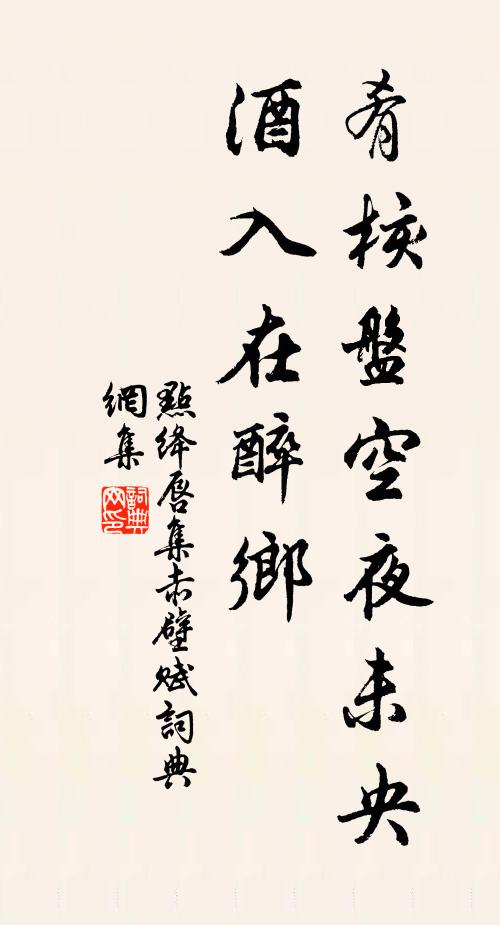 肴核盤空夜未央
酒入在醉鄉
點絳唇集赤壁賦詞典
網集
詞典網印